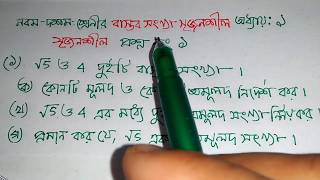 নবম-দশম শ্রেণীর বাস্তব সংখ্যা সৃজনশীল অধ্যায়: ১
সৃজনশীল প্রশ্ন ১
(১) √5 ও 4 দুইটি বাস্তব সংখ্যা।
(ক) কোনটি মূলদ ও অমূলদ নির্দেশ কর।
(খ) √5 ও 4 এর মধ্যে অমূলদ সংখ্যা নির্ণয় কর।
(গ) প্রমাণ কর যে, √5 একটি অমূলদ সংখ্যা।